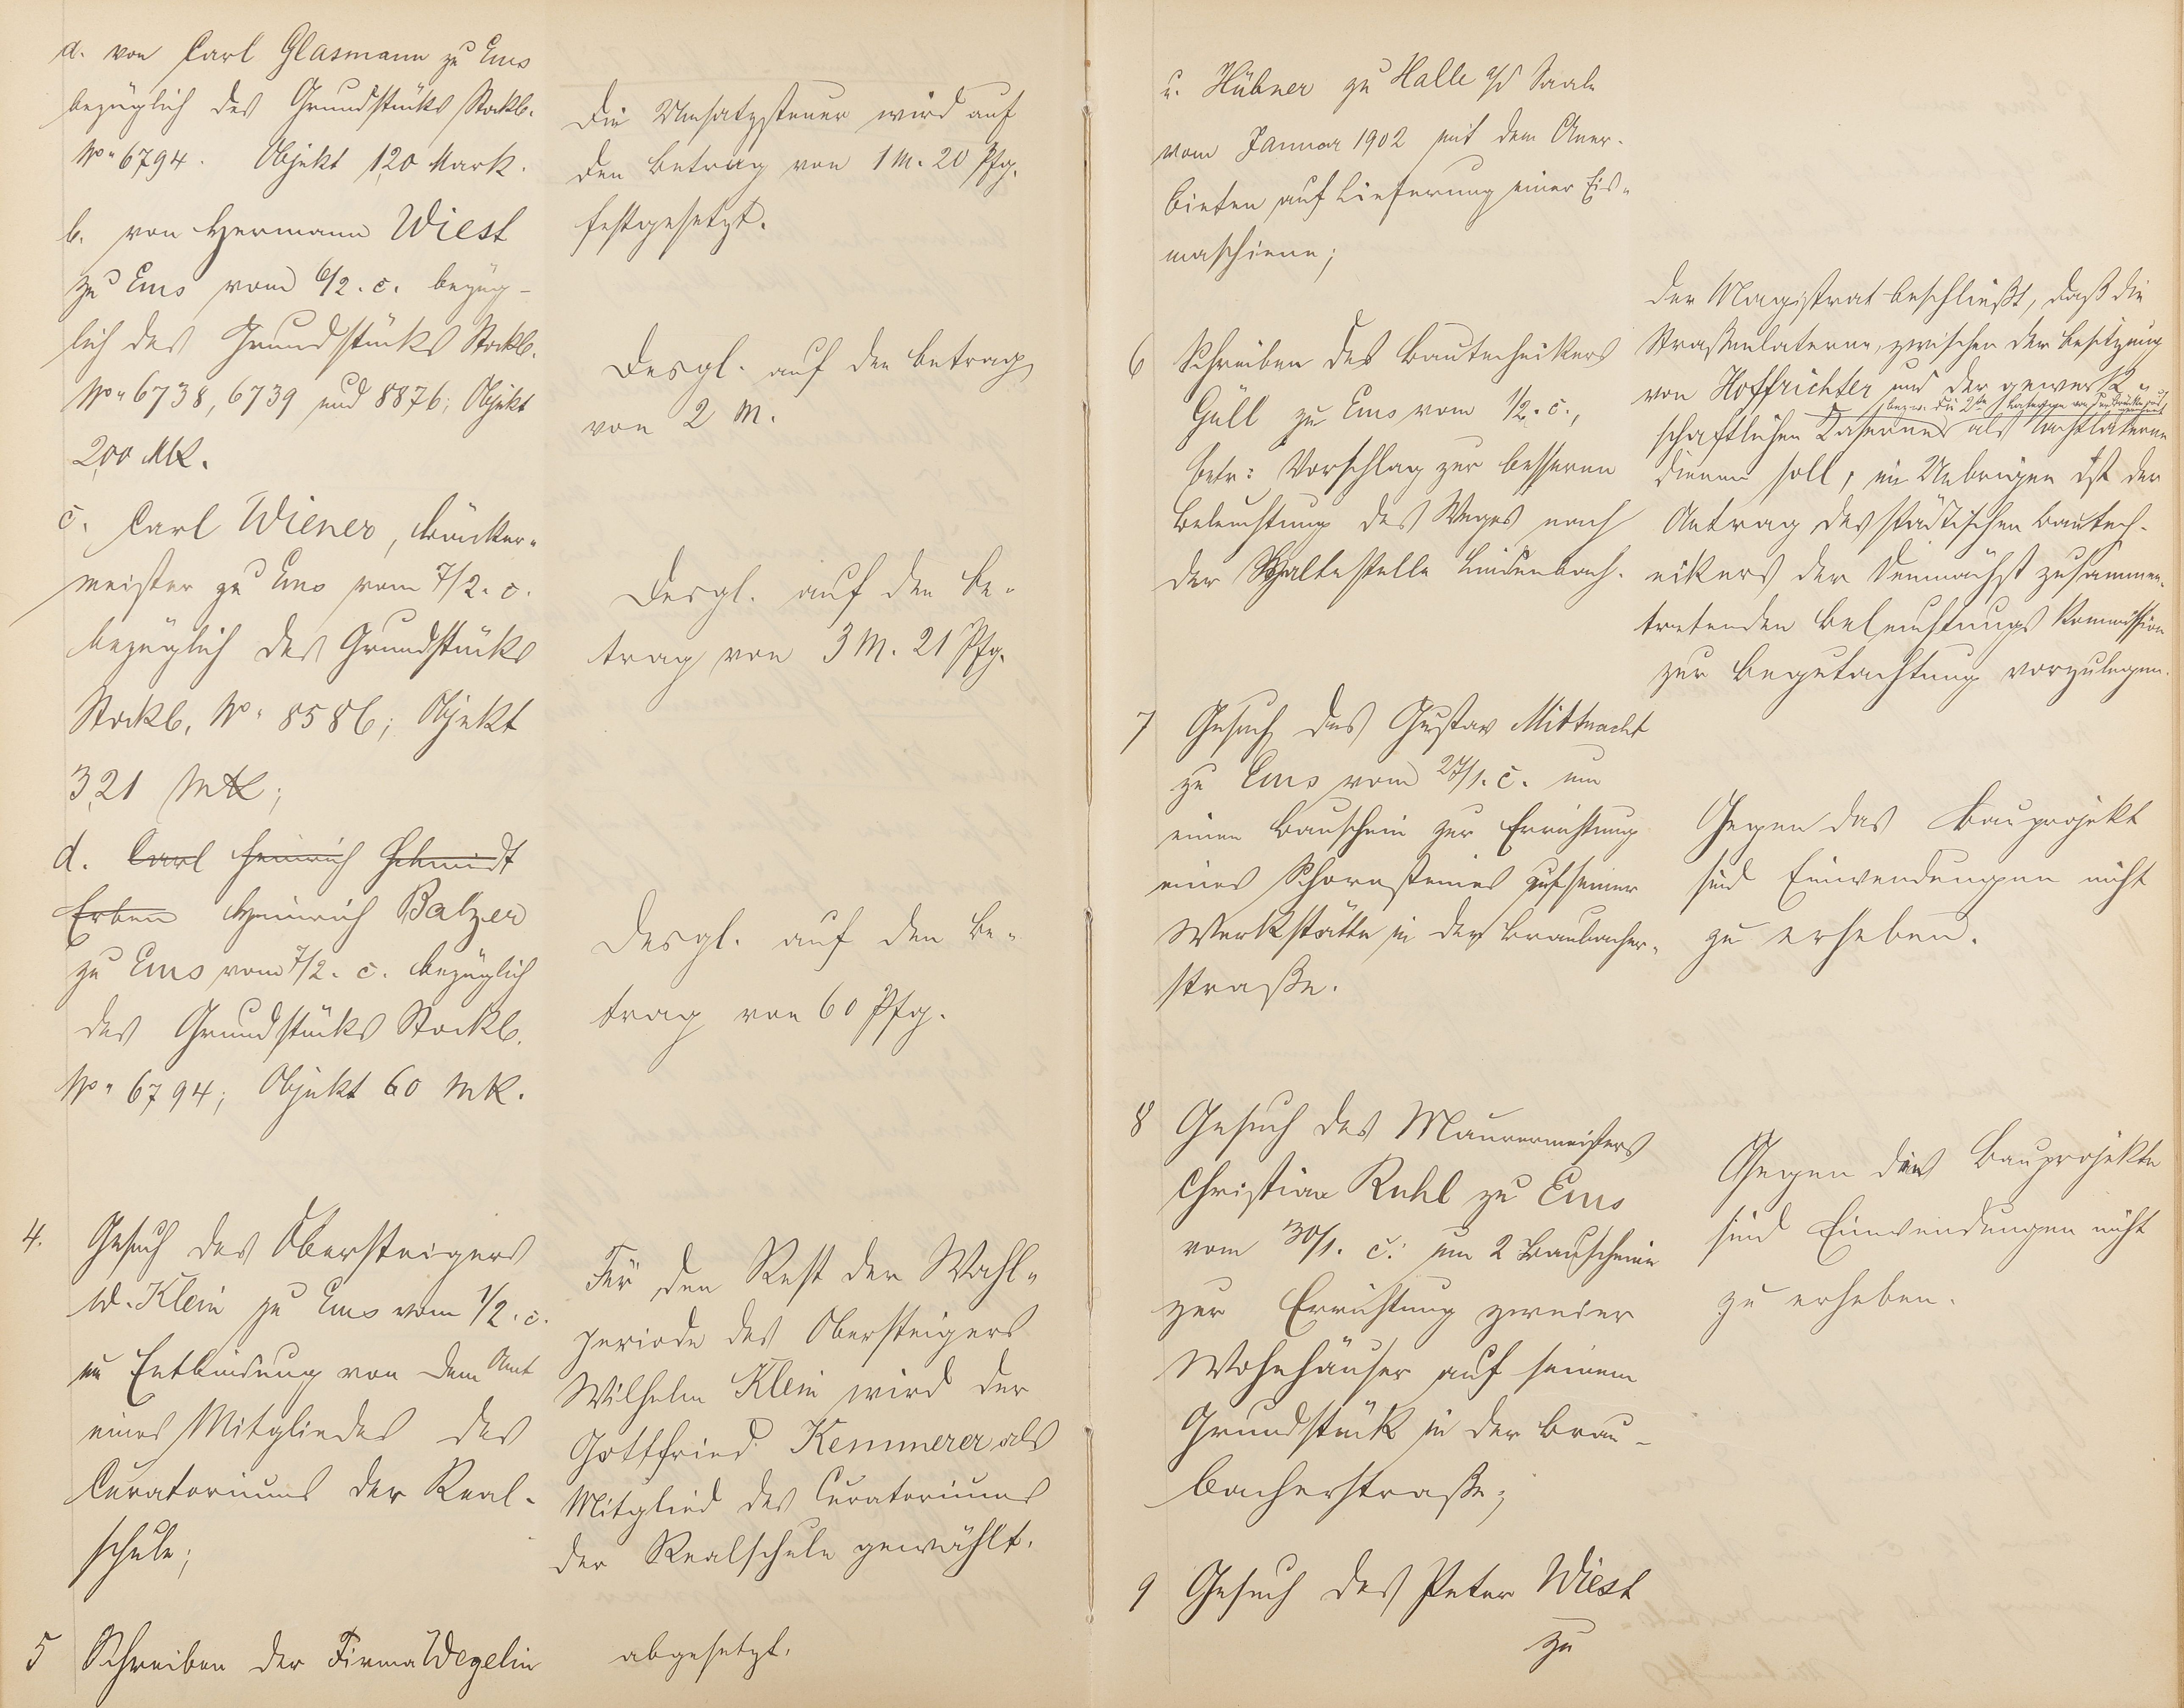 a. von Carl Glasmann zu Ems
bezüglich des Grundstücks Stockb.
No. 6794. Objekt 120 Mark.
Die Umsatzsteuer wird auf
den Betrag von 1 M. 20 Pfg.
festgesetzt.
b. von Hermann Wiest
zu Ems vom 6/2. c. bezüg-
lich des Grundstücks Stockb.
No. 6738, 6739 und 8876; Objekt
200 Mk.
Desgl. auf den Betrag
von 2 M.
c. Carl Wiener, Bäcker-
meister zu Ems vom 7/2. c.
bezüglich des Grundstücks
Stockb. No. 8586; Objekt
321 Mk;
Desgl. auf den Be-
trag von 3 M. 21 Pfg.
d. Carl Heinrich Schmidt
Erben Heinrich Balzer
zu Ems vom 7/2. c. bezüglich
des Grundstücks Stockb.
No. 6794; Objekt 60 Mk.
Desgl. auf den Be-
trag von 60 Pfg.
4. Gesuch des Obersteigers
W. Klein zu Ems vom 1/2. c.
um Entbindung von dem Amt
eines Mitgliedes des
Curatoriums der Real-
schule;
Für den Rest der Wahl-
periode des Obersteigers
Wilhelm Klein wird der
Gottfried Kemmerer als
Mitglied des Curatoriums
der Realschule gewählt.
5 Schreiben der Firma Wegelin
abgesetzt.
u. Hübner zu Halle a/d Saale
vom Januar 1902 mit dem Aner-
bieten auf Lieferung einer Eis-
maschiene;
6 Schreiben des Bautechnikers
Güll zu Ems vom 1/2. c.,
betr: Vorschlag zur besseren
Beleuchtung des Weges nach
der Haltestelle Lindenbach.
Der Magistrat beschließt, daß die
Straßenlaterne, zwischen der Besitzung
von Hoffrichter und der gewerk-
bezw. die 2te
schaftlichen Kaserne als Nachtlaterne
dienen soll, im Uebrigen ist der
Antrag des städtischen Bautech-
nikers der demnächst zusammen-
tretenden Beleuchtungs Kommission
zur Begutachtung vorzulegen.
7 Gesuch des Gustav Mittnacht
zu Ems vom 27/1. c. um
einen Bauschein zur Errichtung
eines Schornsteines auf seiner
Werkstätte in der Braubacher-
straße.
Gegen das Bauprojekt
sind Einwendungen nicht
zu erheben.
8 Gesuch des Maurermeisters
Christian Ruhl zu Ems
vom 30/1. c. um 2 Bauscheine
zur Errichtung zweier
Wohnhäuser auf seinem
Grundstück in der Brau-
bacherstraße;
Gegen die Bauprojekte
sind Einwendungen nicht
zu erheben.
9 Gesuch des Peter Wiest
zu